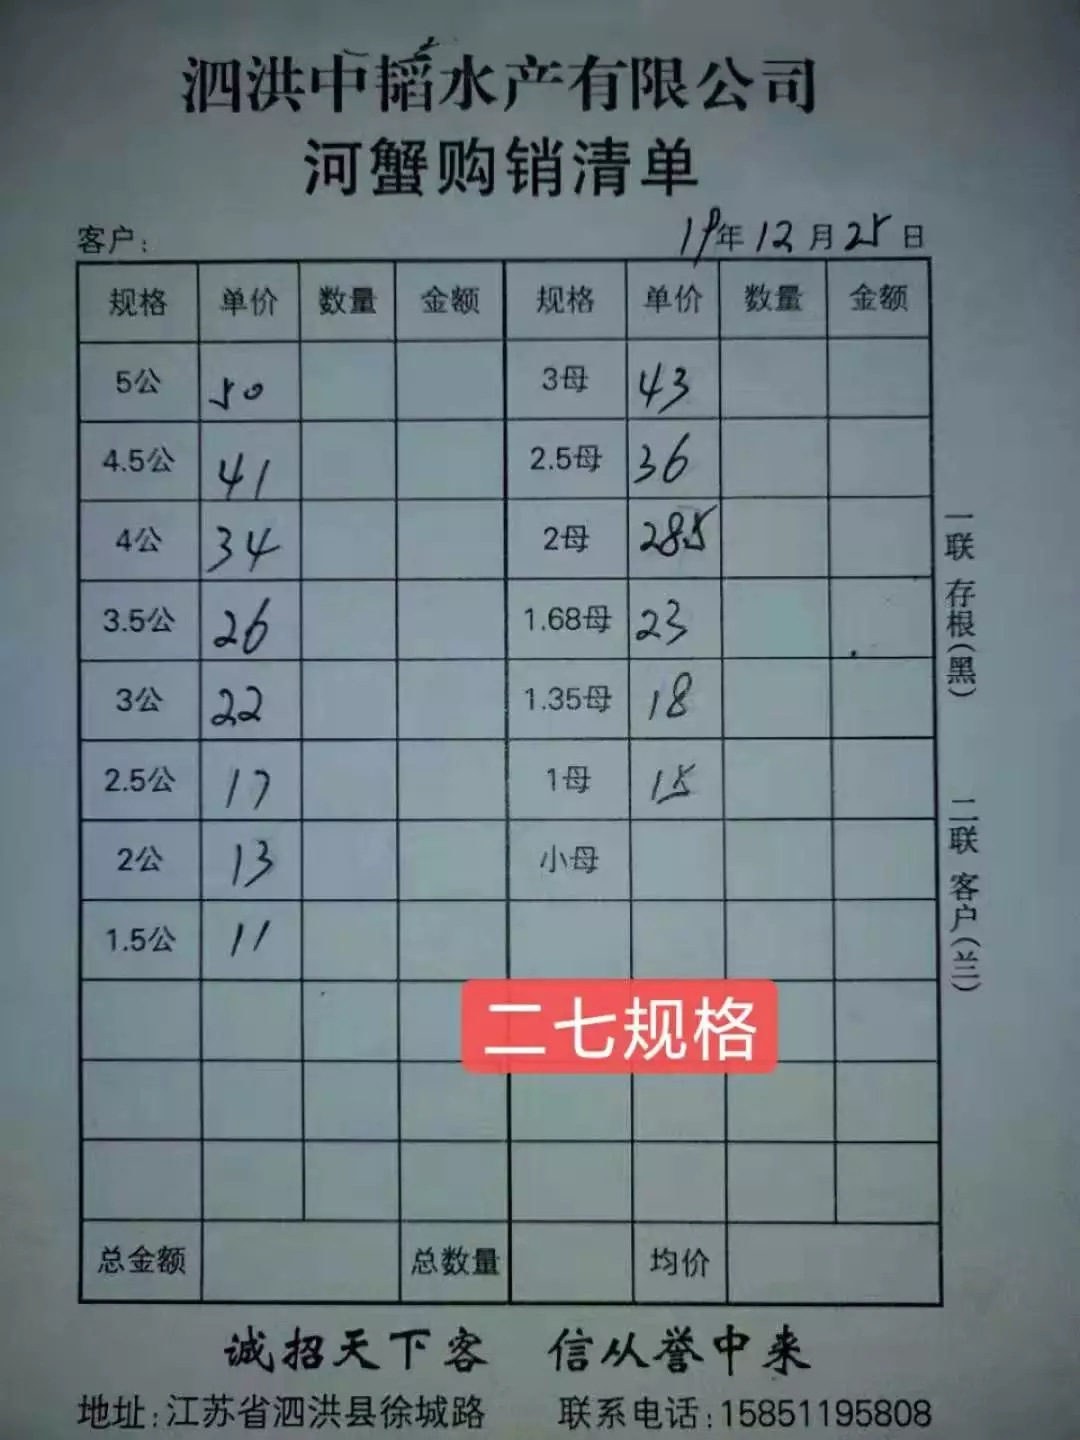 泗洪中韬水产有限公司
河蟹购销清单
客户: 19年12月25日
规格 单价 数量 金额 规格 单价 数量 金额
5公 50 3母 43
4.5公 41 2.5母 36
4公 34 2母 28.5
3.5公 26 1.68母 23
3公 22 1.35母 18
2.5公 17 1母 15
2公 13 小母
1.5公 11
二七规格
总金额 总数量 均价
一联 存根(黑) 二联 客户(兰)
诚招天下客 信从誉中来
地址:江苏省泗洪县徐城路 联系电话:15851195808